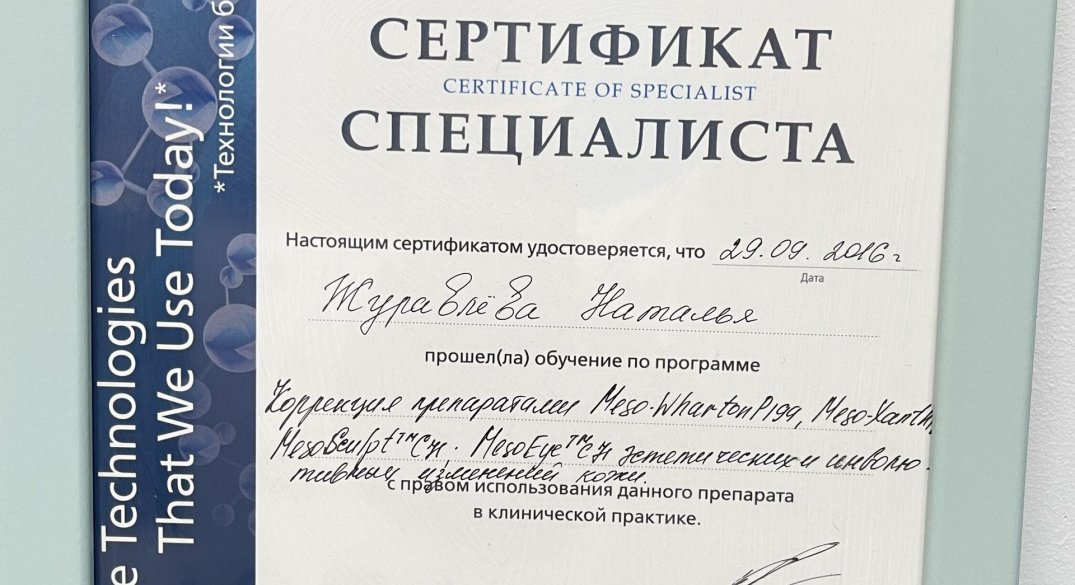 СЕРТИФИКАТ
CERTIFICATE OF SPECIALIST
СПЕЦИАЛИСТА
Настоящим сертификатом удостоверяется, что 29.09.2016г
Дата
Журавлёва Наталья
прошел(ла) обучение по программе
Коррекция препаратами Meso-WhartonP199, Meso-Xanthin,
MesoSculpt™C71, MesoEye™C71 эстетических и инволю-
тивных изменений кожи.
с правом использования данного препарата
в клинической практике.
Technologies
That We Use Today!*
*Технологии